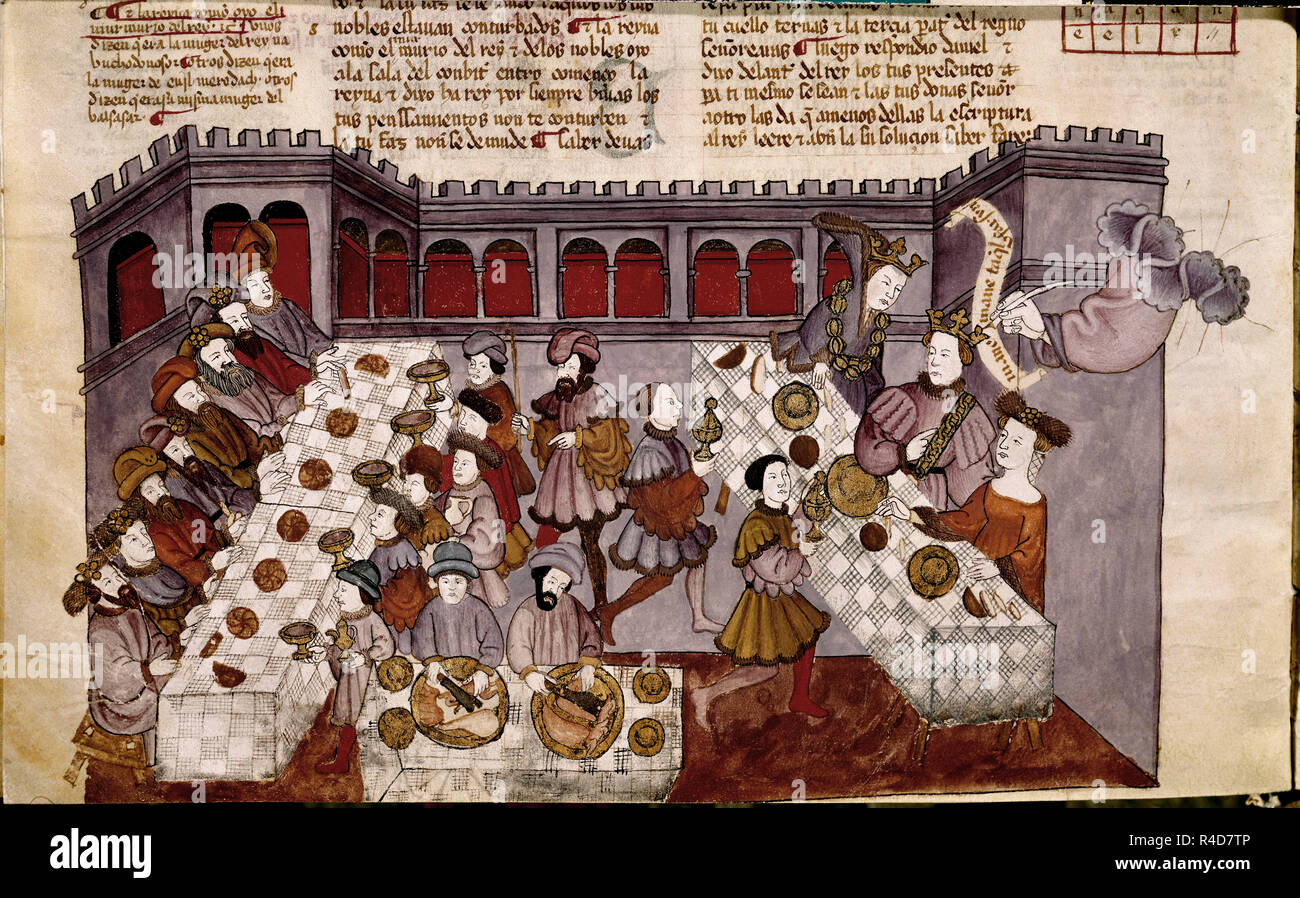 murmurio del rey
dizen q̃ era la muger del rey na
buchodonosor ¶ Otros dizen q̃ era
la muger de euil merodach. otros
dizen q̃ era su misma muger del
balsasar ¶
nobles estauan conturbados ¶ E la reyna
como el murmurio del rey & delos nobles oyo
ala sala del conbit entro començo la
reyna & dixo ha rey por sienpre biuas los
tus penssamientos non te conturben &
la tu faz non se demude ¶ Saber deuas
tu cuello ternas & la terçia part del regno
señorearas ¶ luego respondio daniel &
dixo delant del rey los tus presentes
pa ti mesmo se sean & las tus donas señor
aotro las da q̃ amenos dellas la escriptura
al rey leere & abn la su solucion saber fare:
e e l e //
mane
alamy
a
Image ID: R4D7TP
www.alamy.com